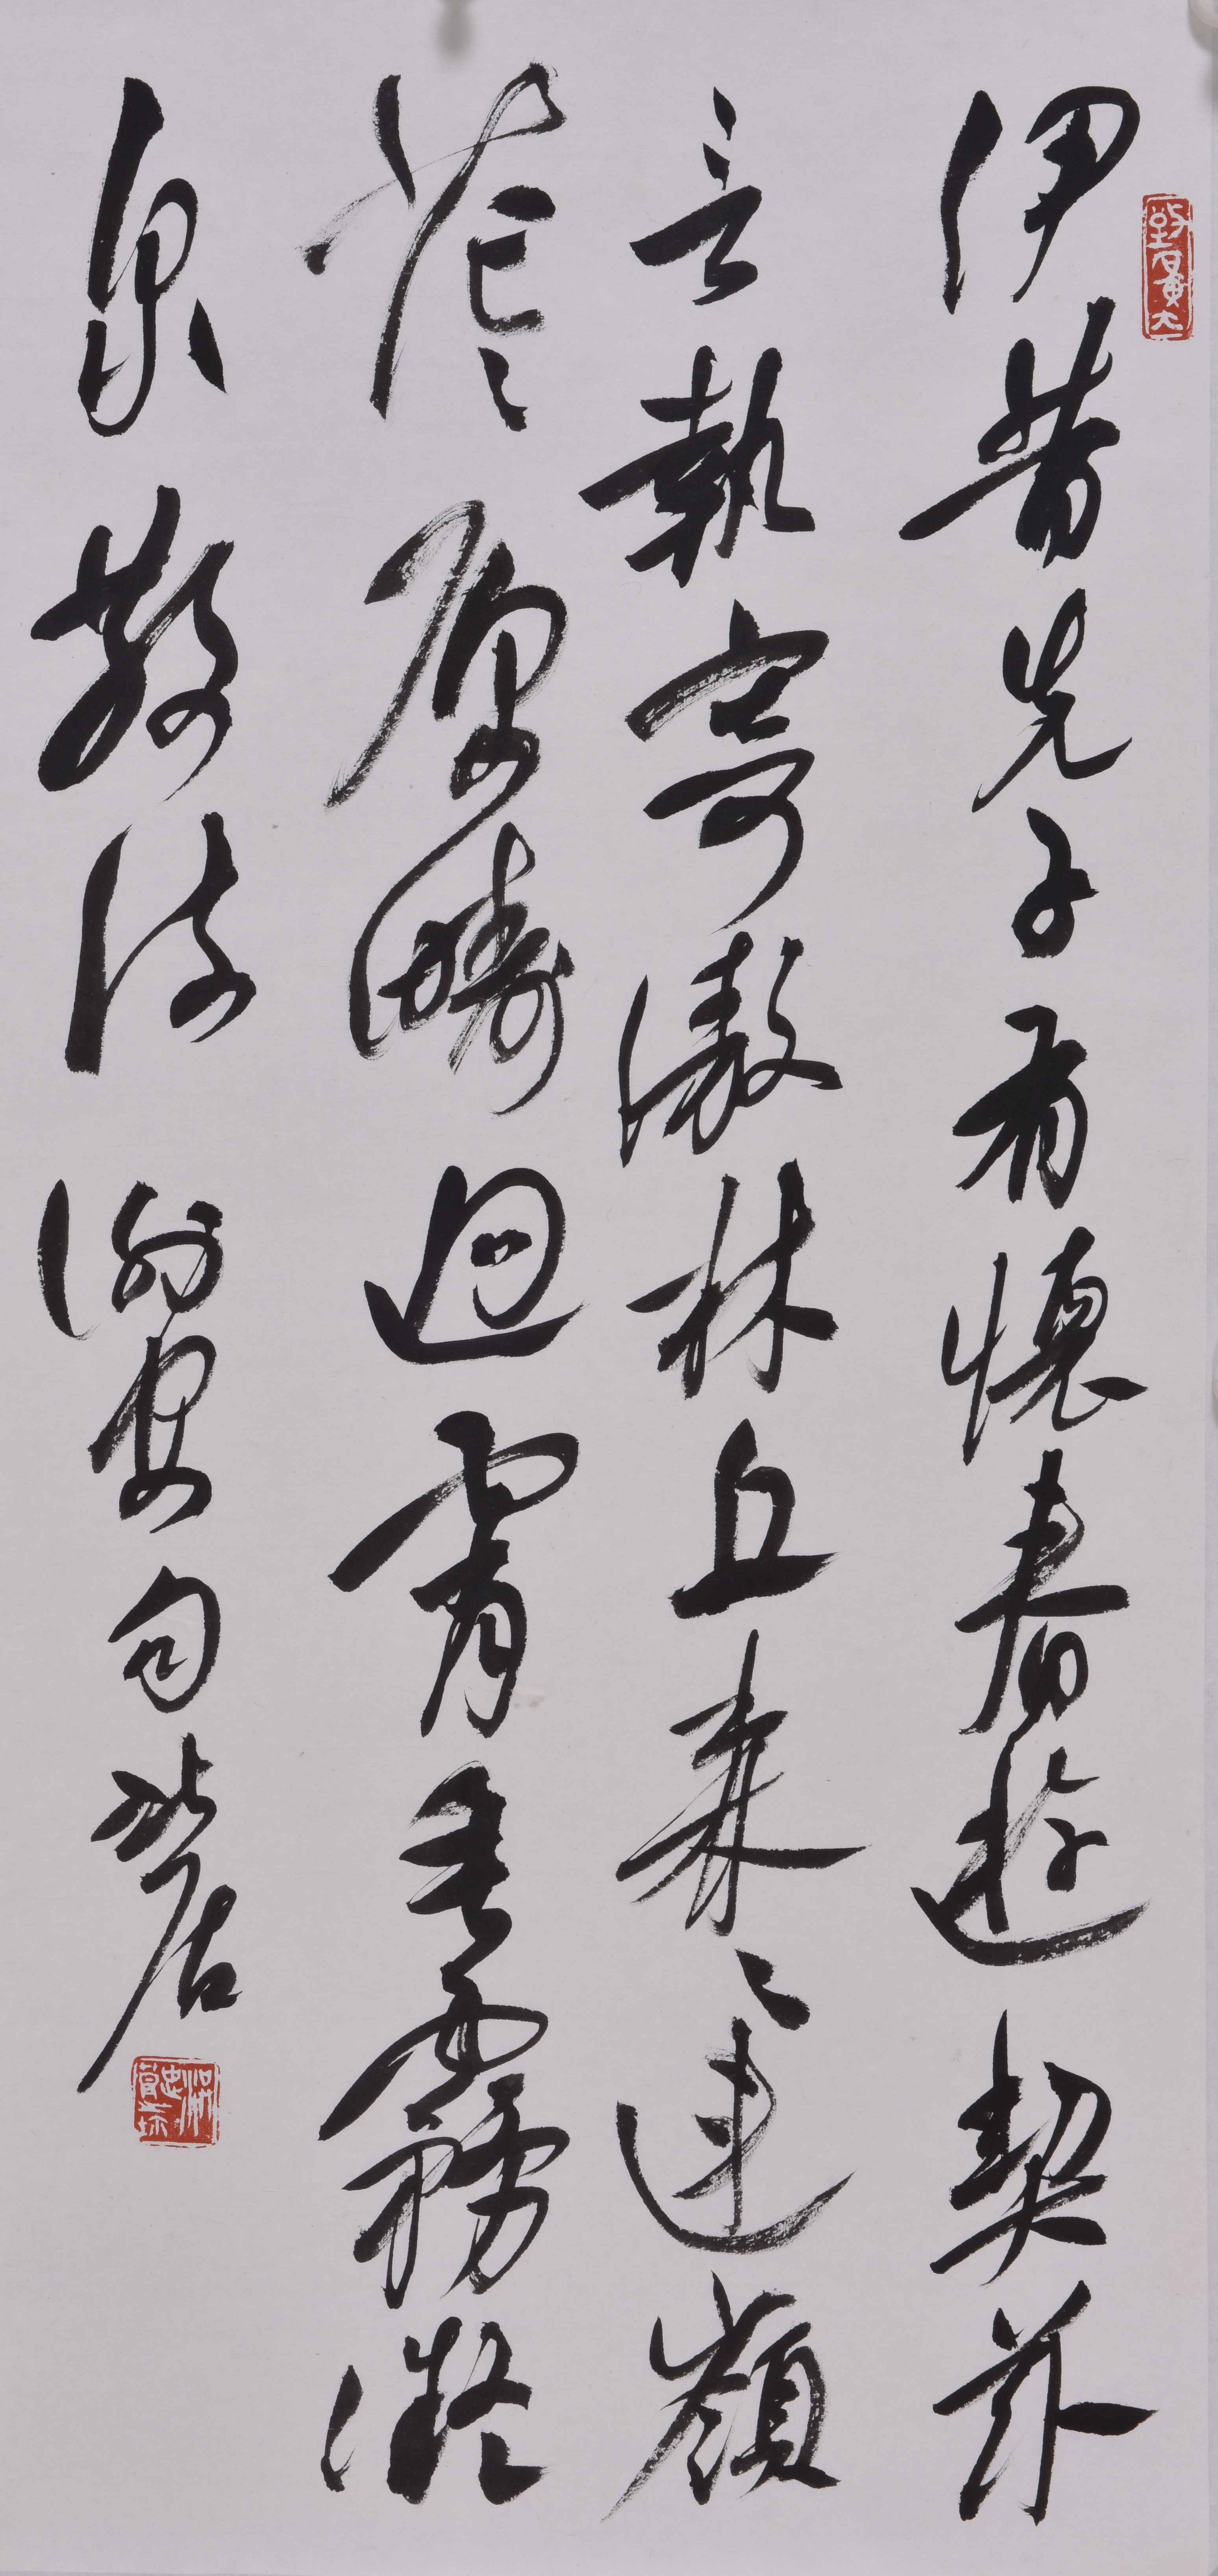 伊昔先子有懷春遊契茲
言執寄傲林丘森〻連嶺
茫〻原疇迥霄垂霧凝
泉散流 謝安句